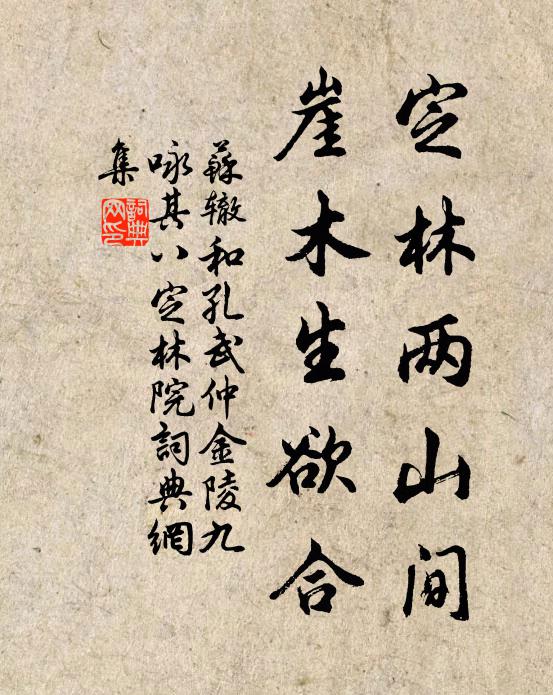 定林两山间
崖木生欲合
蘇辙和孔武仲金陵九
咏其八定林院詞典網
集
詞典網印